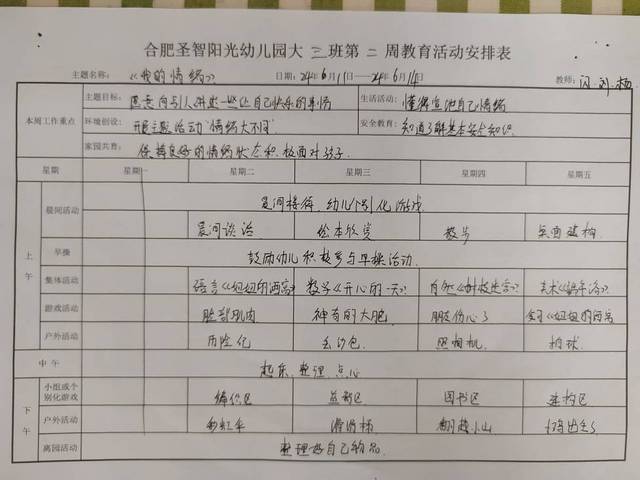 合肥圣智阳光幼儿园大 三 班第 二 周教育活动安排表
主题名称: 《我的情绪》 日期: 24年6月11日—24年6月14日 教师: 闪.刘.杨
本周工作重点 主题目标: 愿意向别人讲述一些让自己快乐的事情 生活活动: 懂得宣泄自己情绪
环境创设: 开展主题活动“情绪大不同” 安全教育: 知道了解基本安全知识.
家园共育: 保持良好的情绪状态积极面对孩子
星期 星期一 星期二 星期三 星期四 星期五
上午 晨间活动 晨间接待.幼儿个别化游戏
晨间谈话 绘本欣赏 散步 桌面建构
早操 鼓励幼儿积极参与早操活动.
集体活动 语言《妞妞的雨帘》 数学《开心的一天》 自然 美术
游戏活动 脸部肌肉 神奇的大脸 朋友伤心了 《妞妞的雨帘
户外活动 历险记 丢沙包 照相机. 拍球.
中午 起床、整理、点心
下午 小组或个别化游戏 编织区 益智区 图书区 建构区
户外活动 彩虹伞 滑滑梯 翻越小山
离园活动 整理好自己物品.